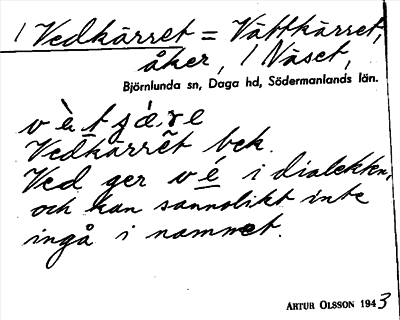 / Vedkärret = Vättkärret,
åker, / Näset,
Björnlunda sn, Daga hd, Södermanlands län.
Vedkärret bek.
Ved ger vé i dialekten,
och kan sannolikt inte
ingå i namnet.
ARTUR OLSSON 1943